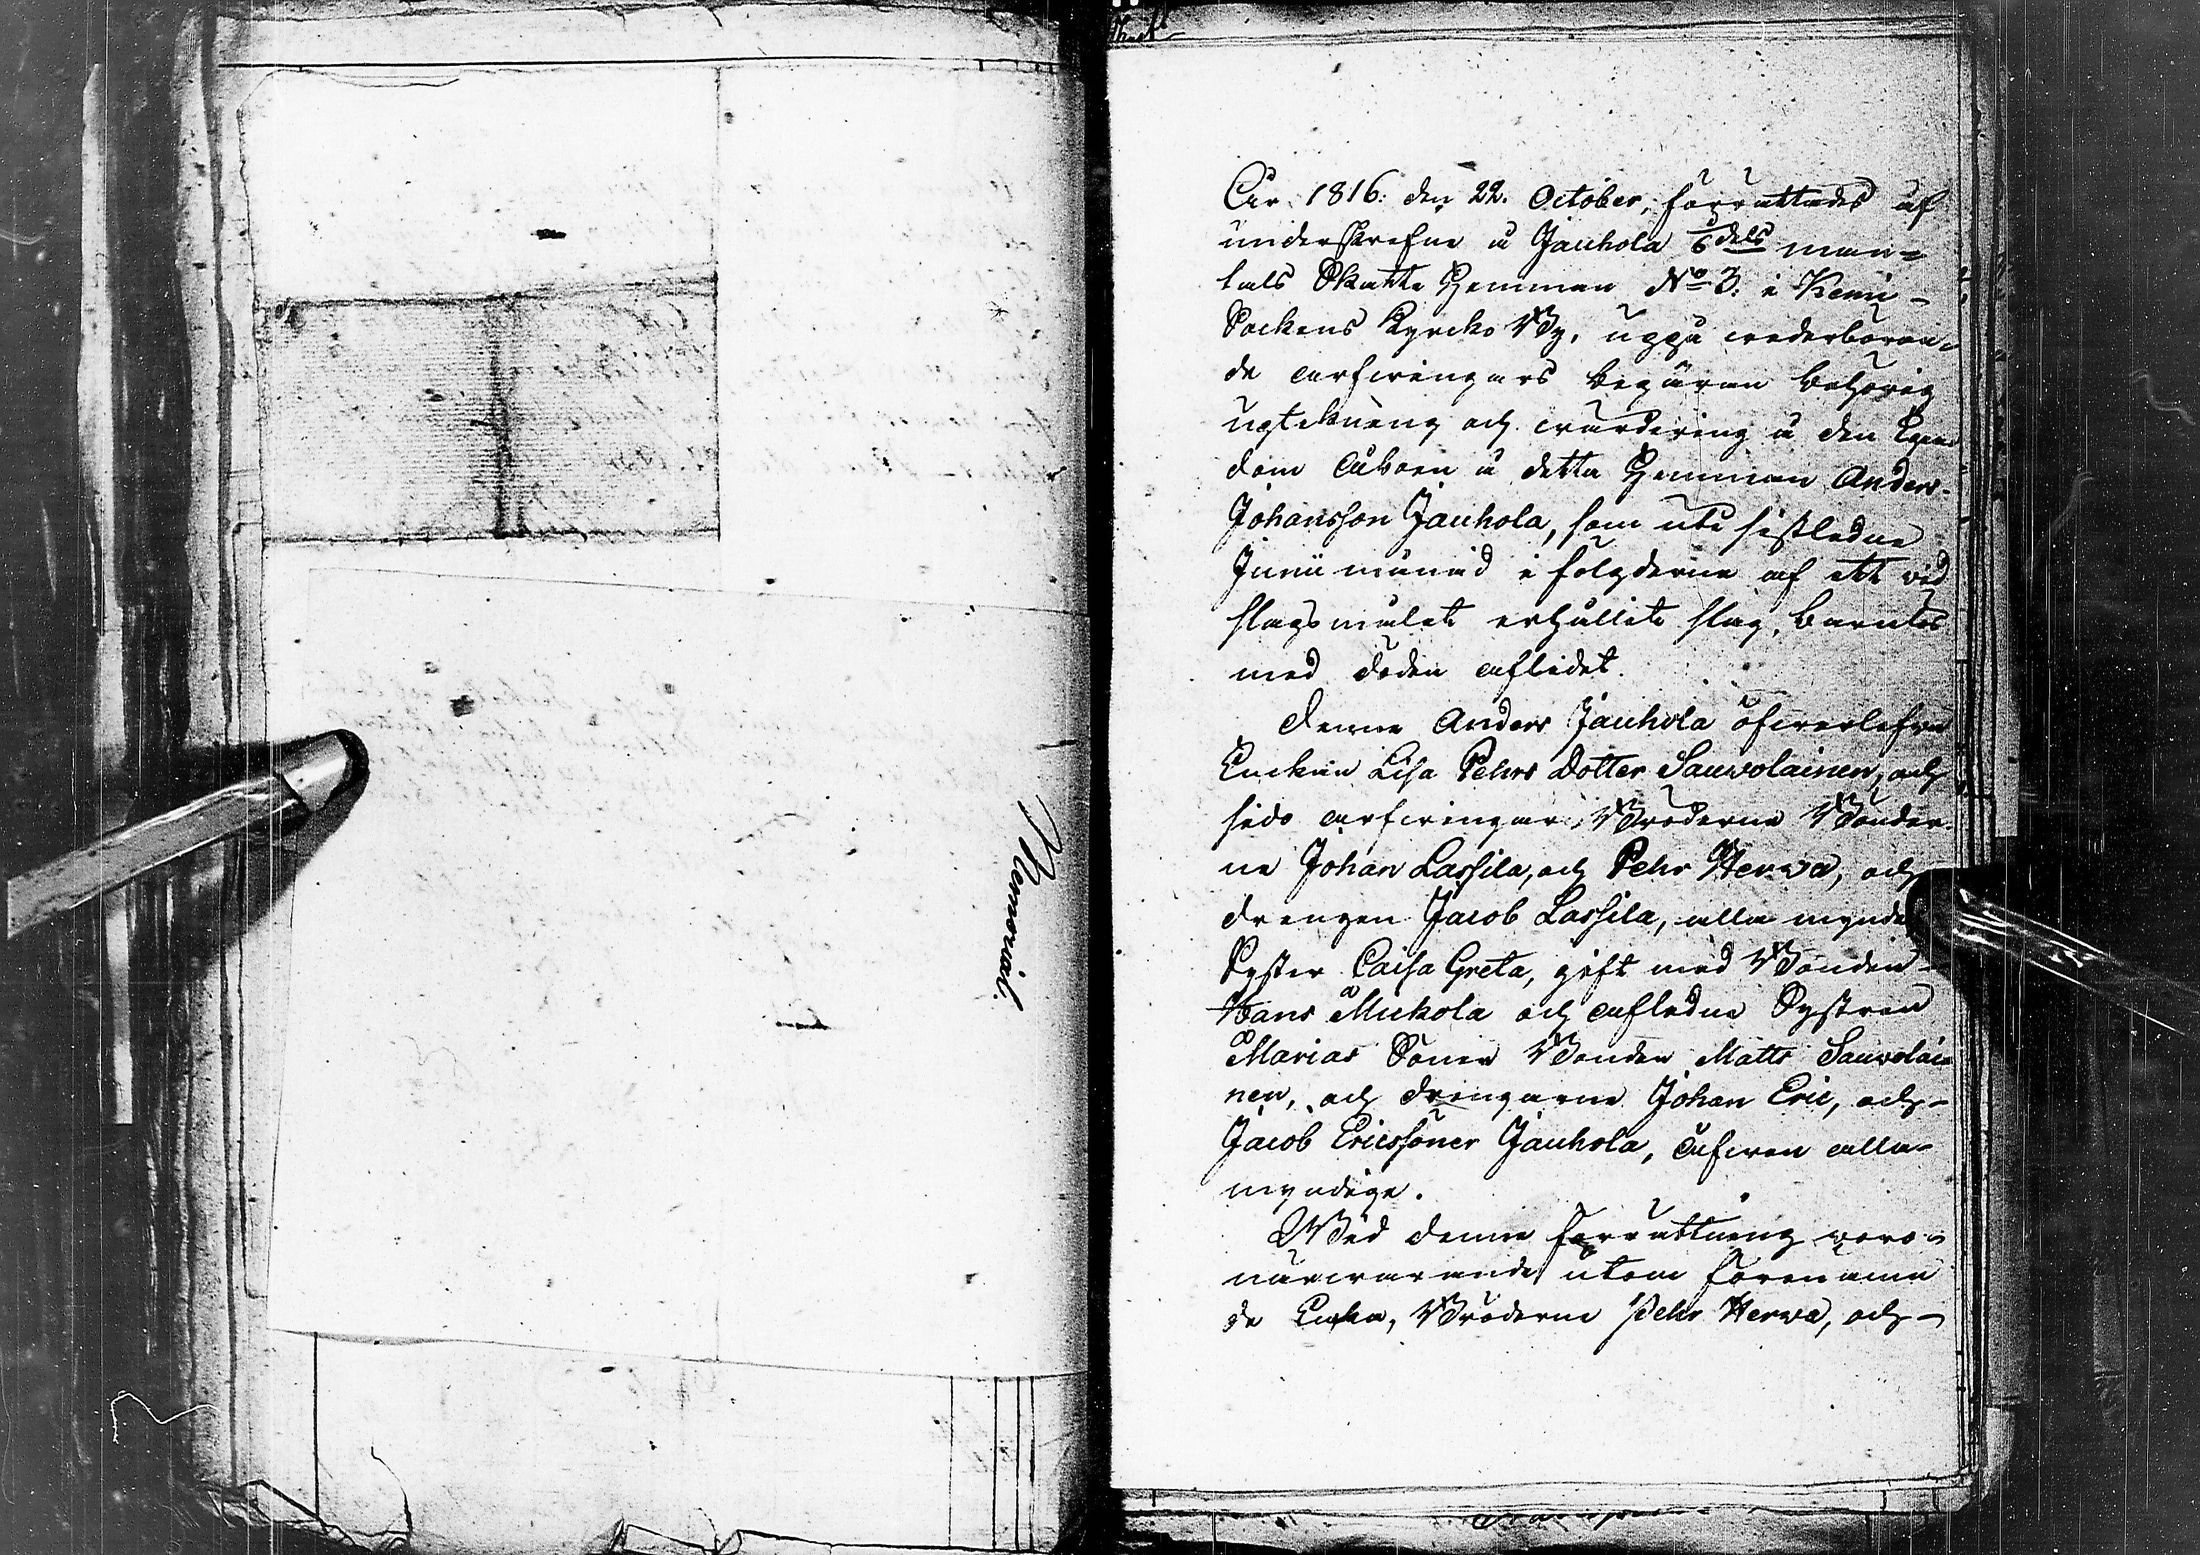 Memorial.
År 1816. den 22. October, förrättades af
underskrefne å Jauhola 1/6 dels man-
tals Skatte Hemman No 3. i Kemi
Sockens Kyrcko By, uppå wederböran-
de arfwingars begäran behörig
upteckning och wärdering å den Egen
dom Åboen å detta Hemman Anders
Johansson Jauhola, som uti sistledne
Junii månad i följderne af ett wid
slagsmålet erhållit slag, barnlös
med döden aflidet.
Denne Anders Jauhola öfwerlefwa
Enckan Lisa Pehrs Dotter Sauwolainen, och
sido arfwingar, Bröderne Bönder-
ne Johan Lassila, och Pehr Herwa, och
drengen Jacob Lassila, alla
Syster Caisa Greta, gift med Bonden
Hans Muckola och aflidne Systren
Marias Söner Bonden Matts Sauwolai
nen, och drengarne Johan Eric, och
Jacob Ericssöner Jauhola, äfwen alla
myndige.
Wid denne förrättning woro
närwarande utom förenämn
de Enka, Bröderne Pehr Herwa, och